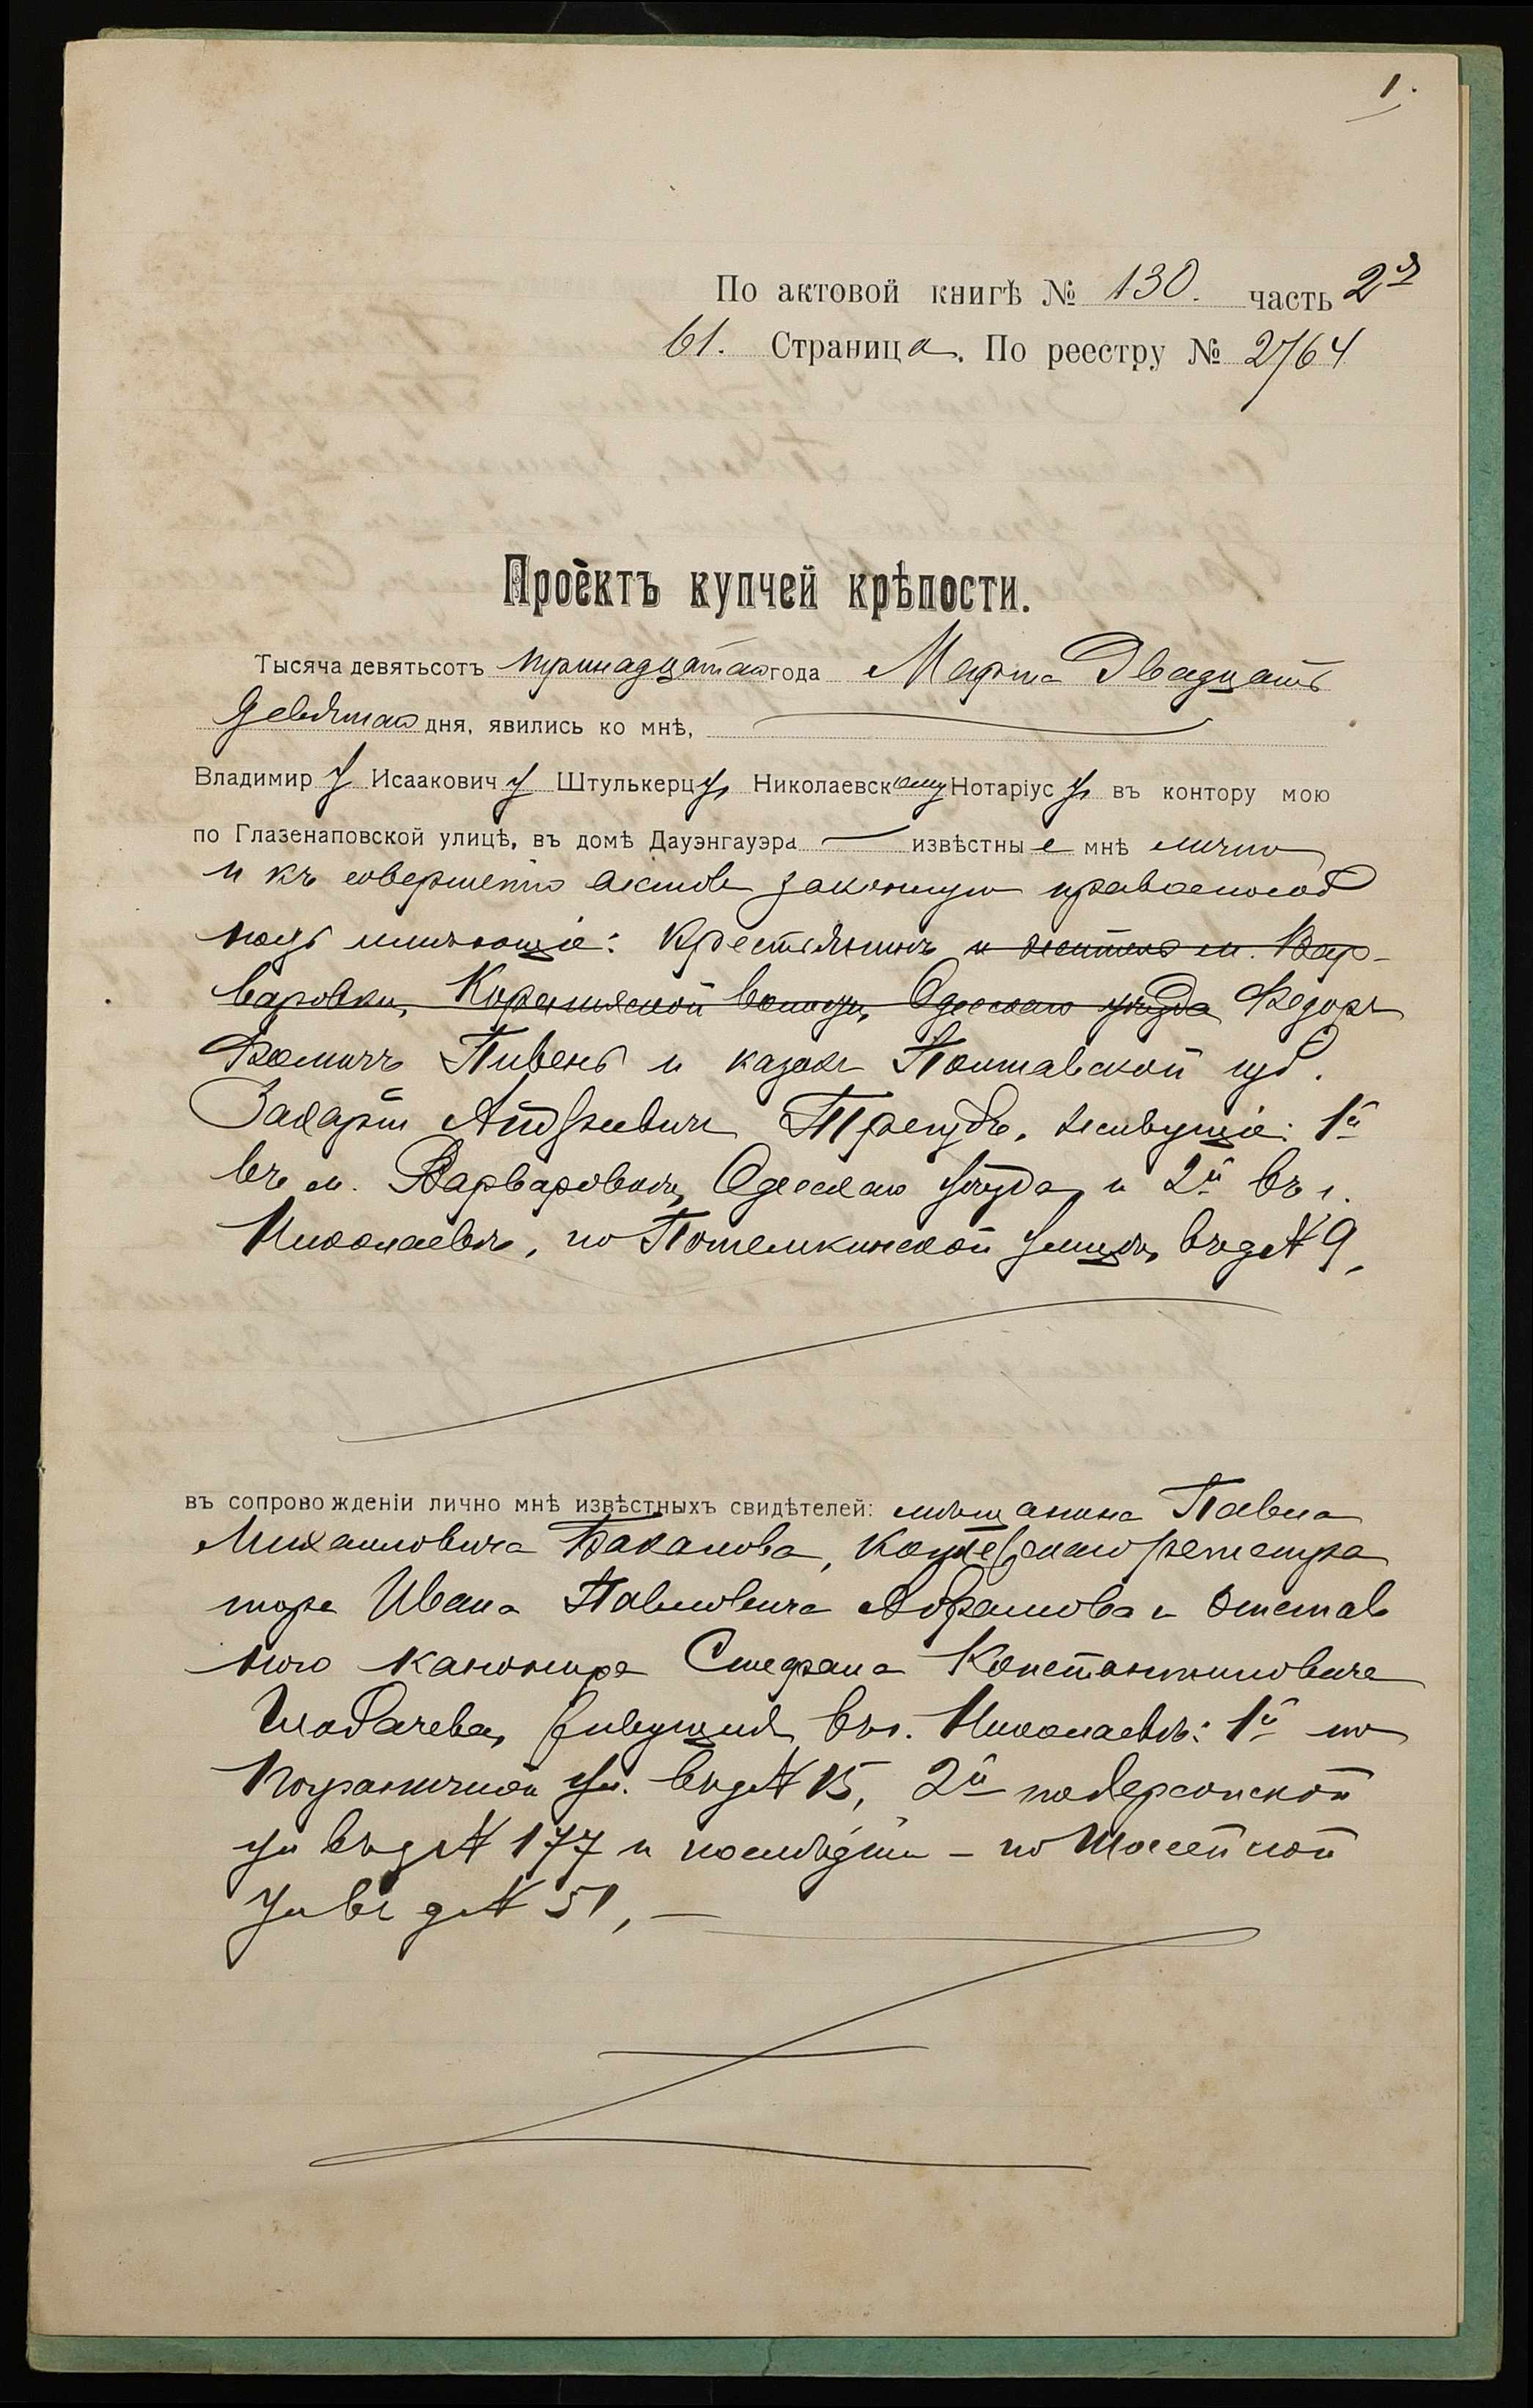 1.
По актовой книгѣ № 130. часть 2я
61. Страница. По реестру № 2764
Проектъ купчей крѣпости.
Тысяча девятьсотъ тринадцатаго года Марта Двадцать
девятаго дня, явились ко мнѣ,
Владимиру Исааковичу Штулькерцу, Николаевскому Нотаріусу, въ контору мою
по Глазенаповской улицѣ, въ домѣ Дауэнгауэра — извѣстные мнѣ лично
и къ совершенію актовъ законную правоспособ
ность имѣющіе: Крестьянинъ и житель м. Вар-
варовки, волости, Одесскаго уѣзда Федоръ
Фомичъ Пивень и казакъ Полтавской губ.
Захарій Андреевичъ живущіе: 1й
въ м. Варваровкѣ, Одесскаго уѣзда, и 2й въ г.
Николаевѣ, по Потемкинской улицѣ, въ д № 9,
въ сопровожденіи лично мнѣ извѣстныхъ свидѣтелей: мѣщанина Павла
Михаиловича Баканова, Коллежскаго регистра
тора Ивана Павловича Абрамова и отстав
ного канонира Стефана Константиновича
живущихъ въ г. Николаевѣ: 1й по
Пограничной ул. въ д № 15, 2й по Херсонской
ул въ д № 177 и послѣдній – по Шоссейной
ул въ д № 51, —